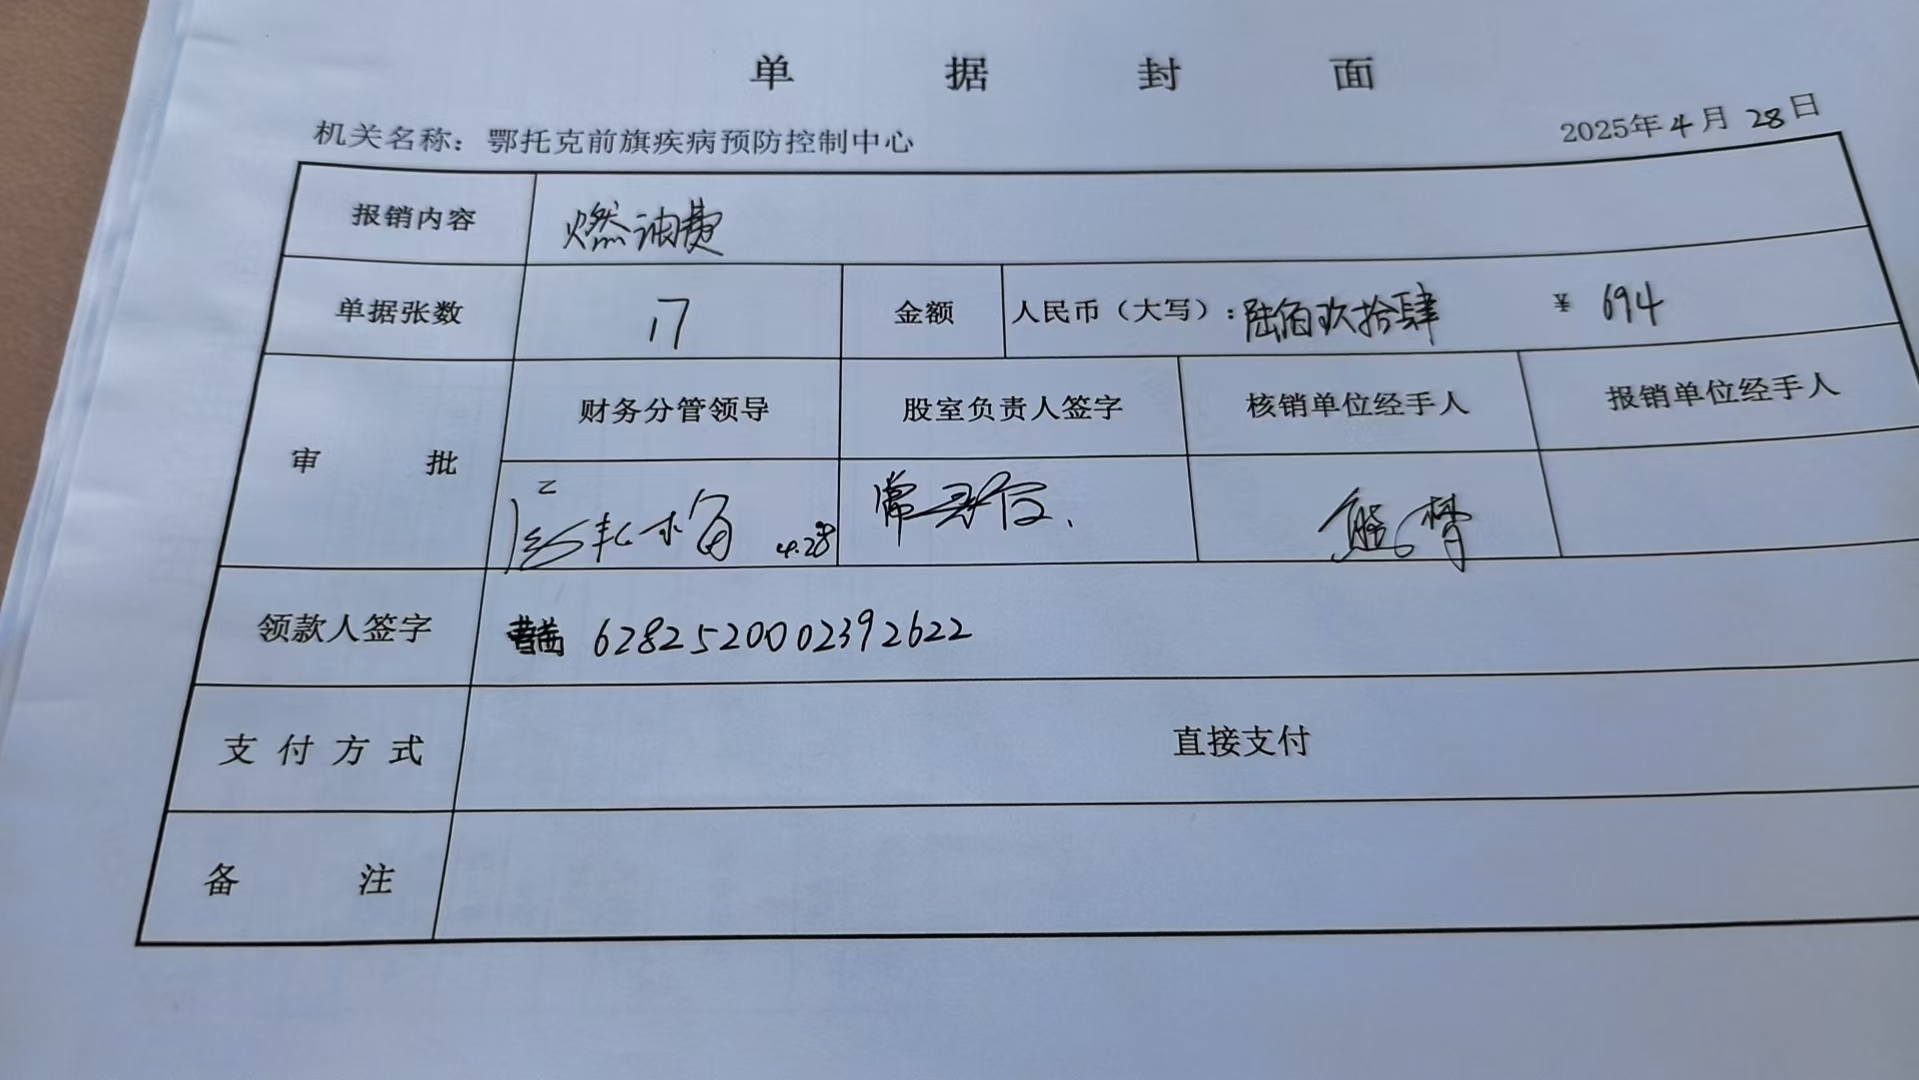 单据封面
机关名称：鄂托克前旗疾病预防控制中心 2025年4月28日
报销内容 燃油费
单据张数 17 金额 人民币（大写）：陆佰玖拾肆 ¥ 694
审批 财务分管领导 股室负责人签字 核销单位经手人 报销单位经手人
4.28
领款人签字 6282520002392622
支付方式 直接支付
备注